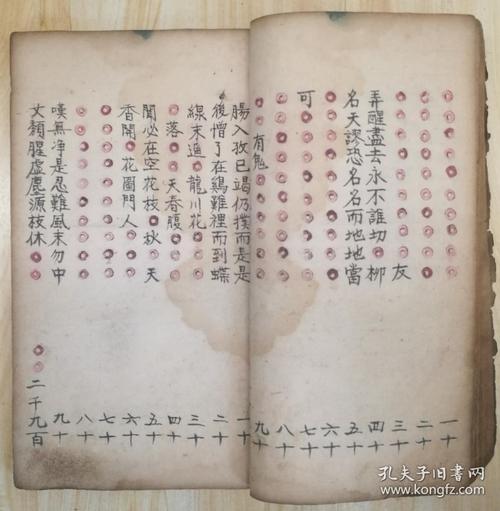 一十
二十
友 三十
弄醒盡去永不誰切○柳 四十
名天謬恐名名而地地當 五十
六十
可 七十
八十
有鬼 九十
腸入孜已竭仍撲而是是 一十
後憎了在鷄難裡而到蝶 二十
線末迪○龍川花 三十
落 天春腹 四十
聞必在空花枝○秋○天 五十
香開○花園門人 六十
七十
八十
嘆無净是忍難風末勿中 九十
丈顏腥虛塵源枝休○○ ○○二千九百
孔夫子旧书网
www.kongfz.com